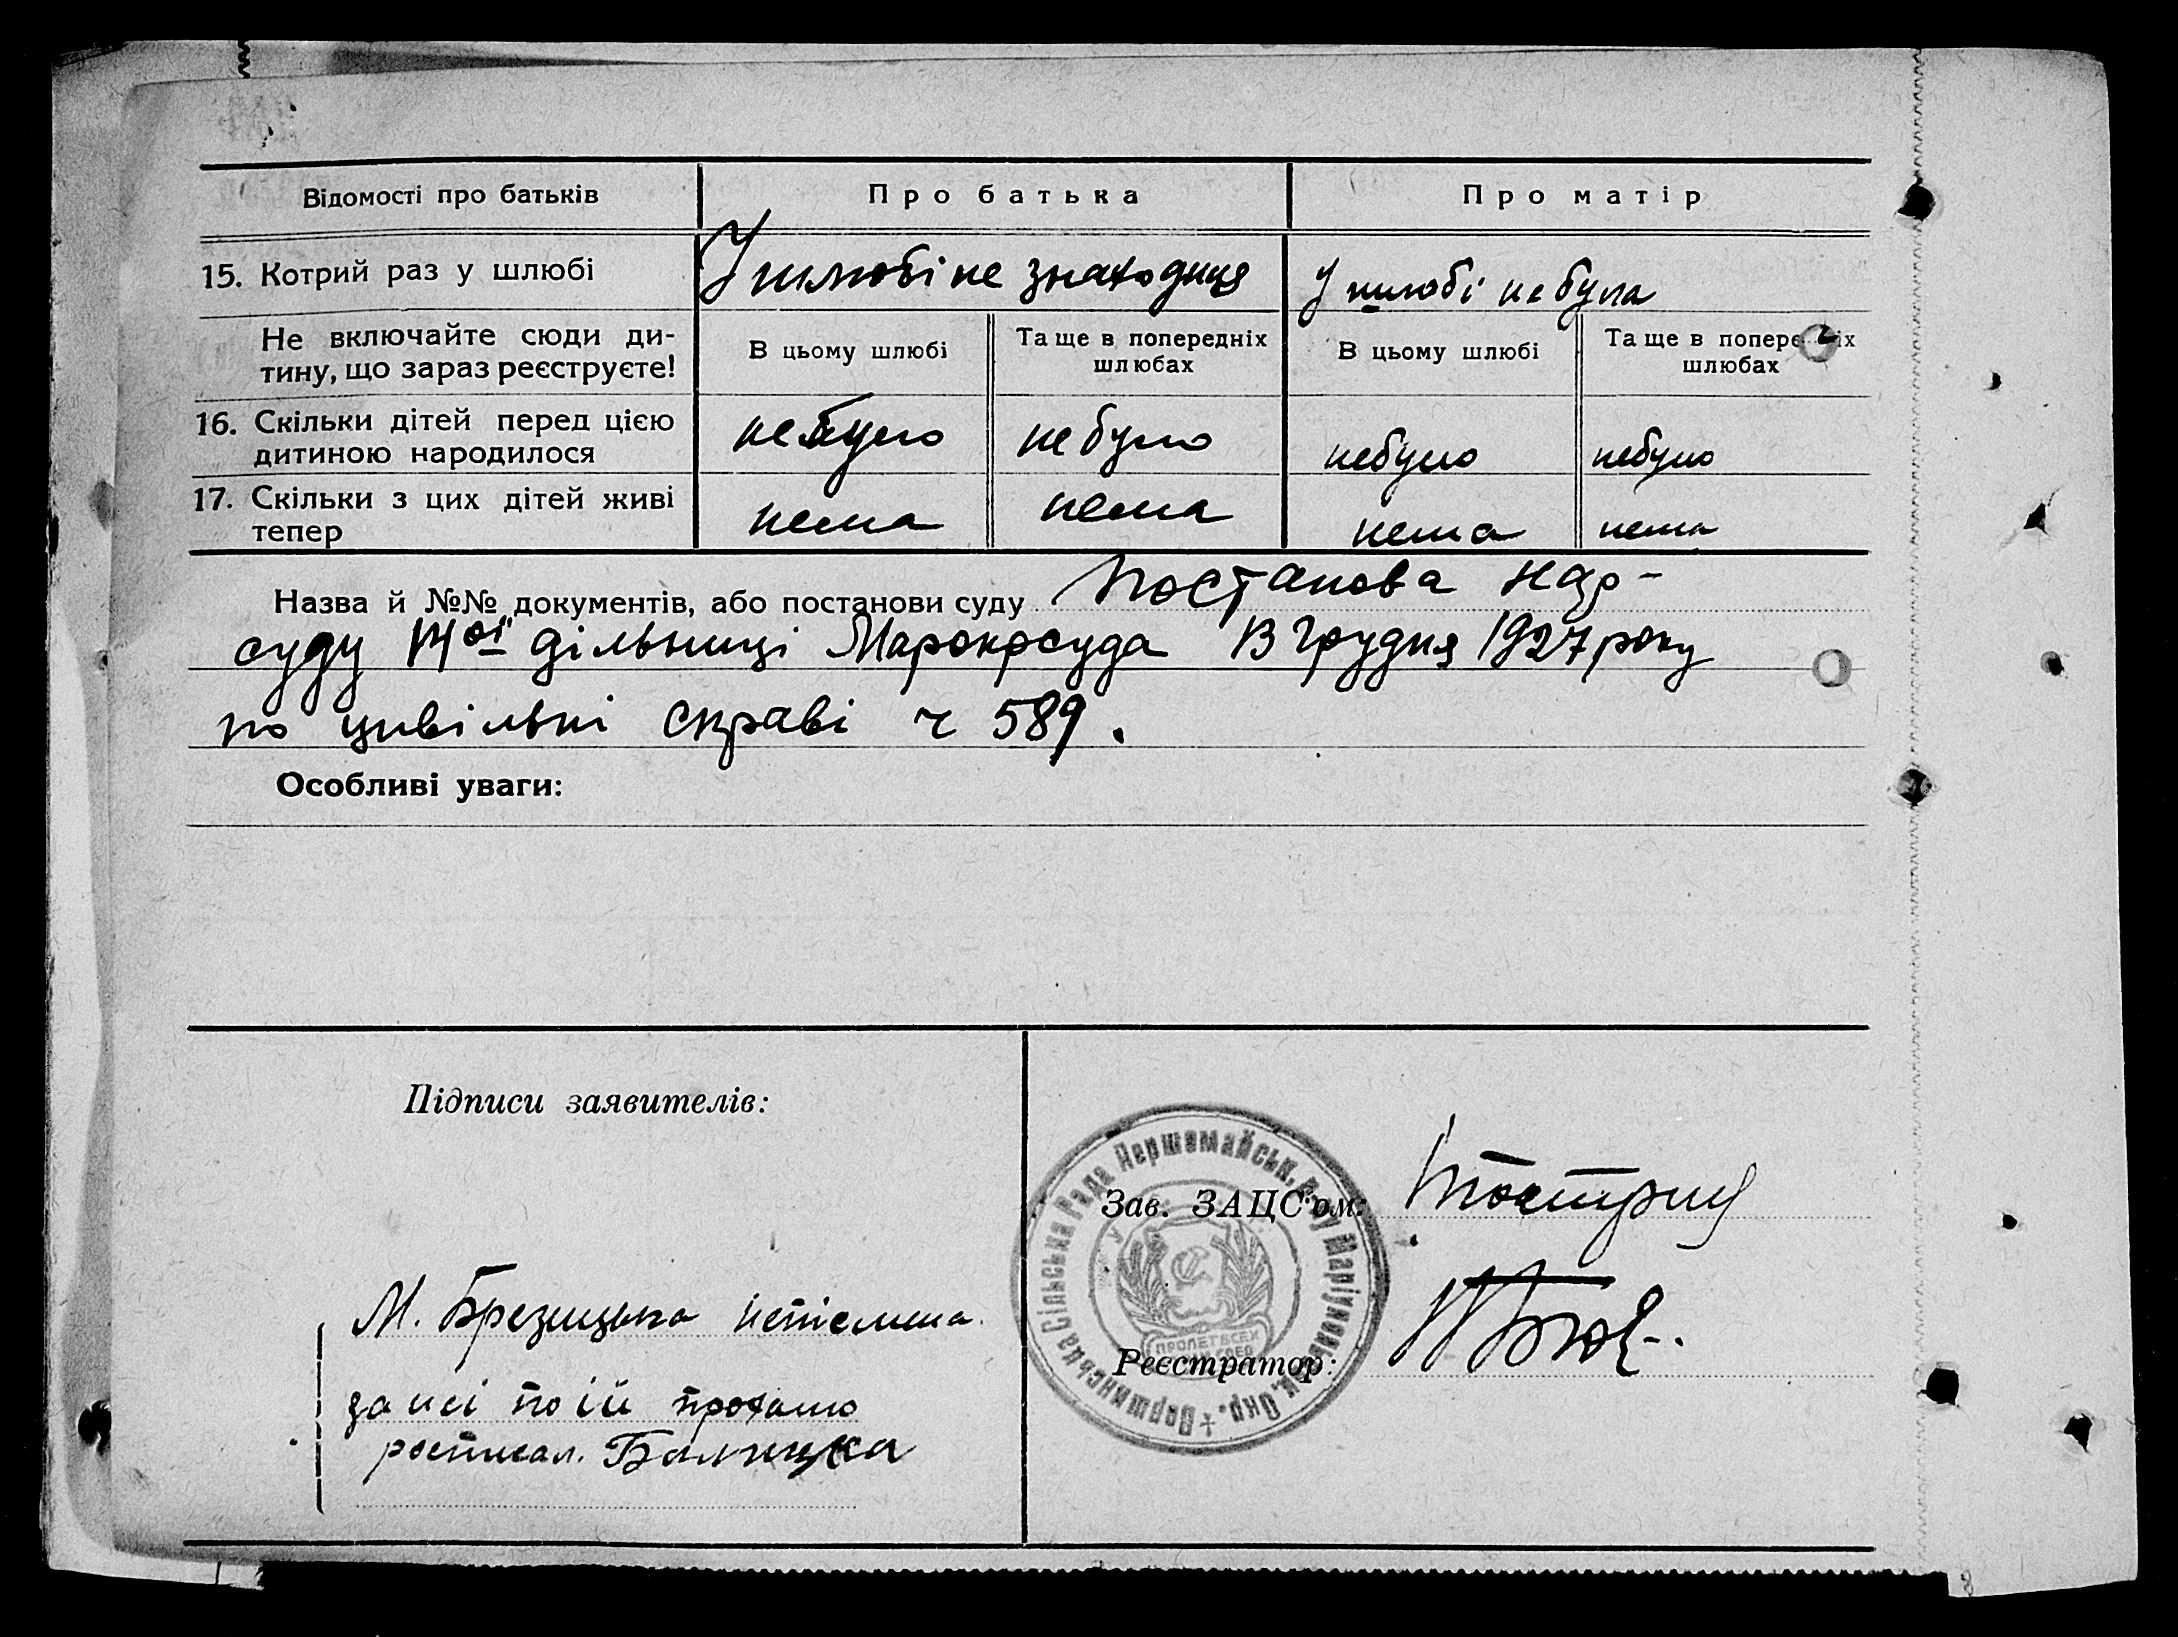 Відомості про батьків Про батька Про матір
15. Котрий раз у шлюбі У шлюбі не знаходица У шлюбі не була
Не включайте сюди ди-
тину, що зараз реєструєте!
В цьому шлюбі
Та ще в попередніх
шлюбах
В цьому шлюбі
Та ще в попере іх
шлюбах
16. Скільки дітей перед цією
дитиною народилося
небуло не було небуло небуло
17. Скільки з цих дітей живі
тепер
нема нема нема нема
Назва й №№ документів, або постанови суду Постанова нар-
суду ої дільниці Марокрсуда 13 Грудня 1927 року
по цивільні справі ч 589.
Особливі уваги:
Підписи заявителів:
М. Брезицька
за неї по їй
Зав. ЗАЦС'ом:
Реєстратор:
Сільська Рада Першомайськ. р-ну Маріупольськ. Окр.